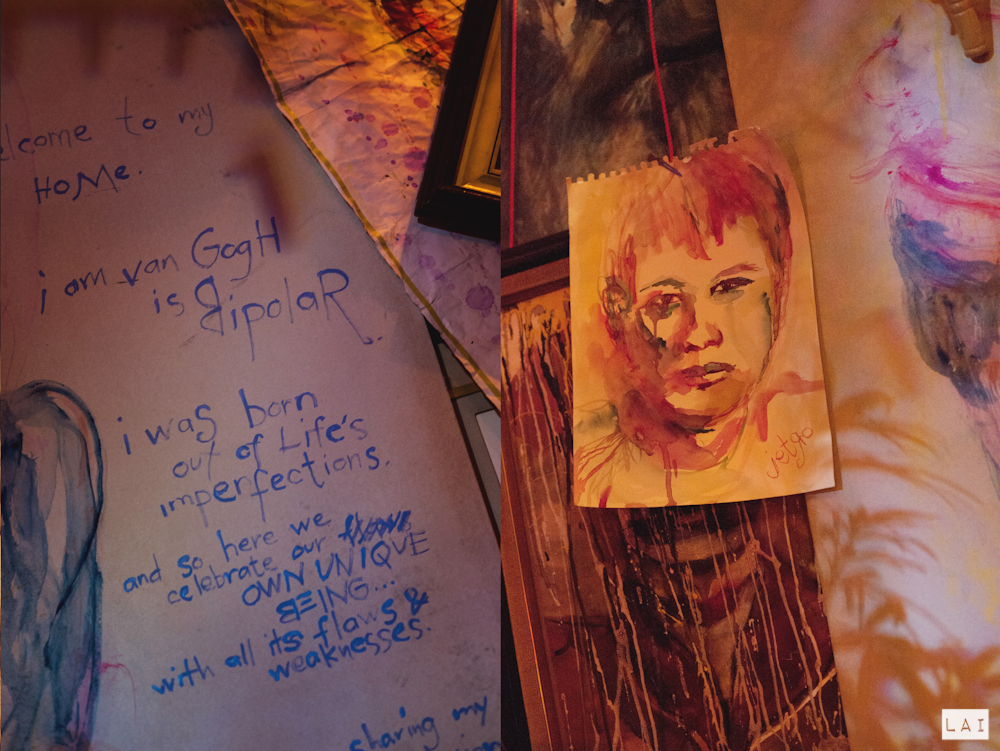 elcome to my
HOMe.
i am van GogH
is BipolaR
i was born
out of Life's
imperfections.
and so here we
celebrate our
OWN UNIQUE
BEING...
with all its flaws &
weaknesses.
sharing my
jetgo
LAI